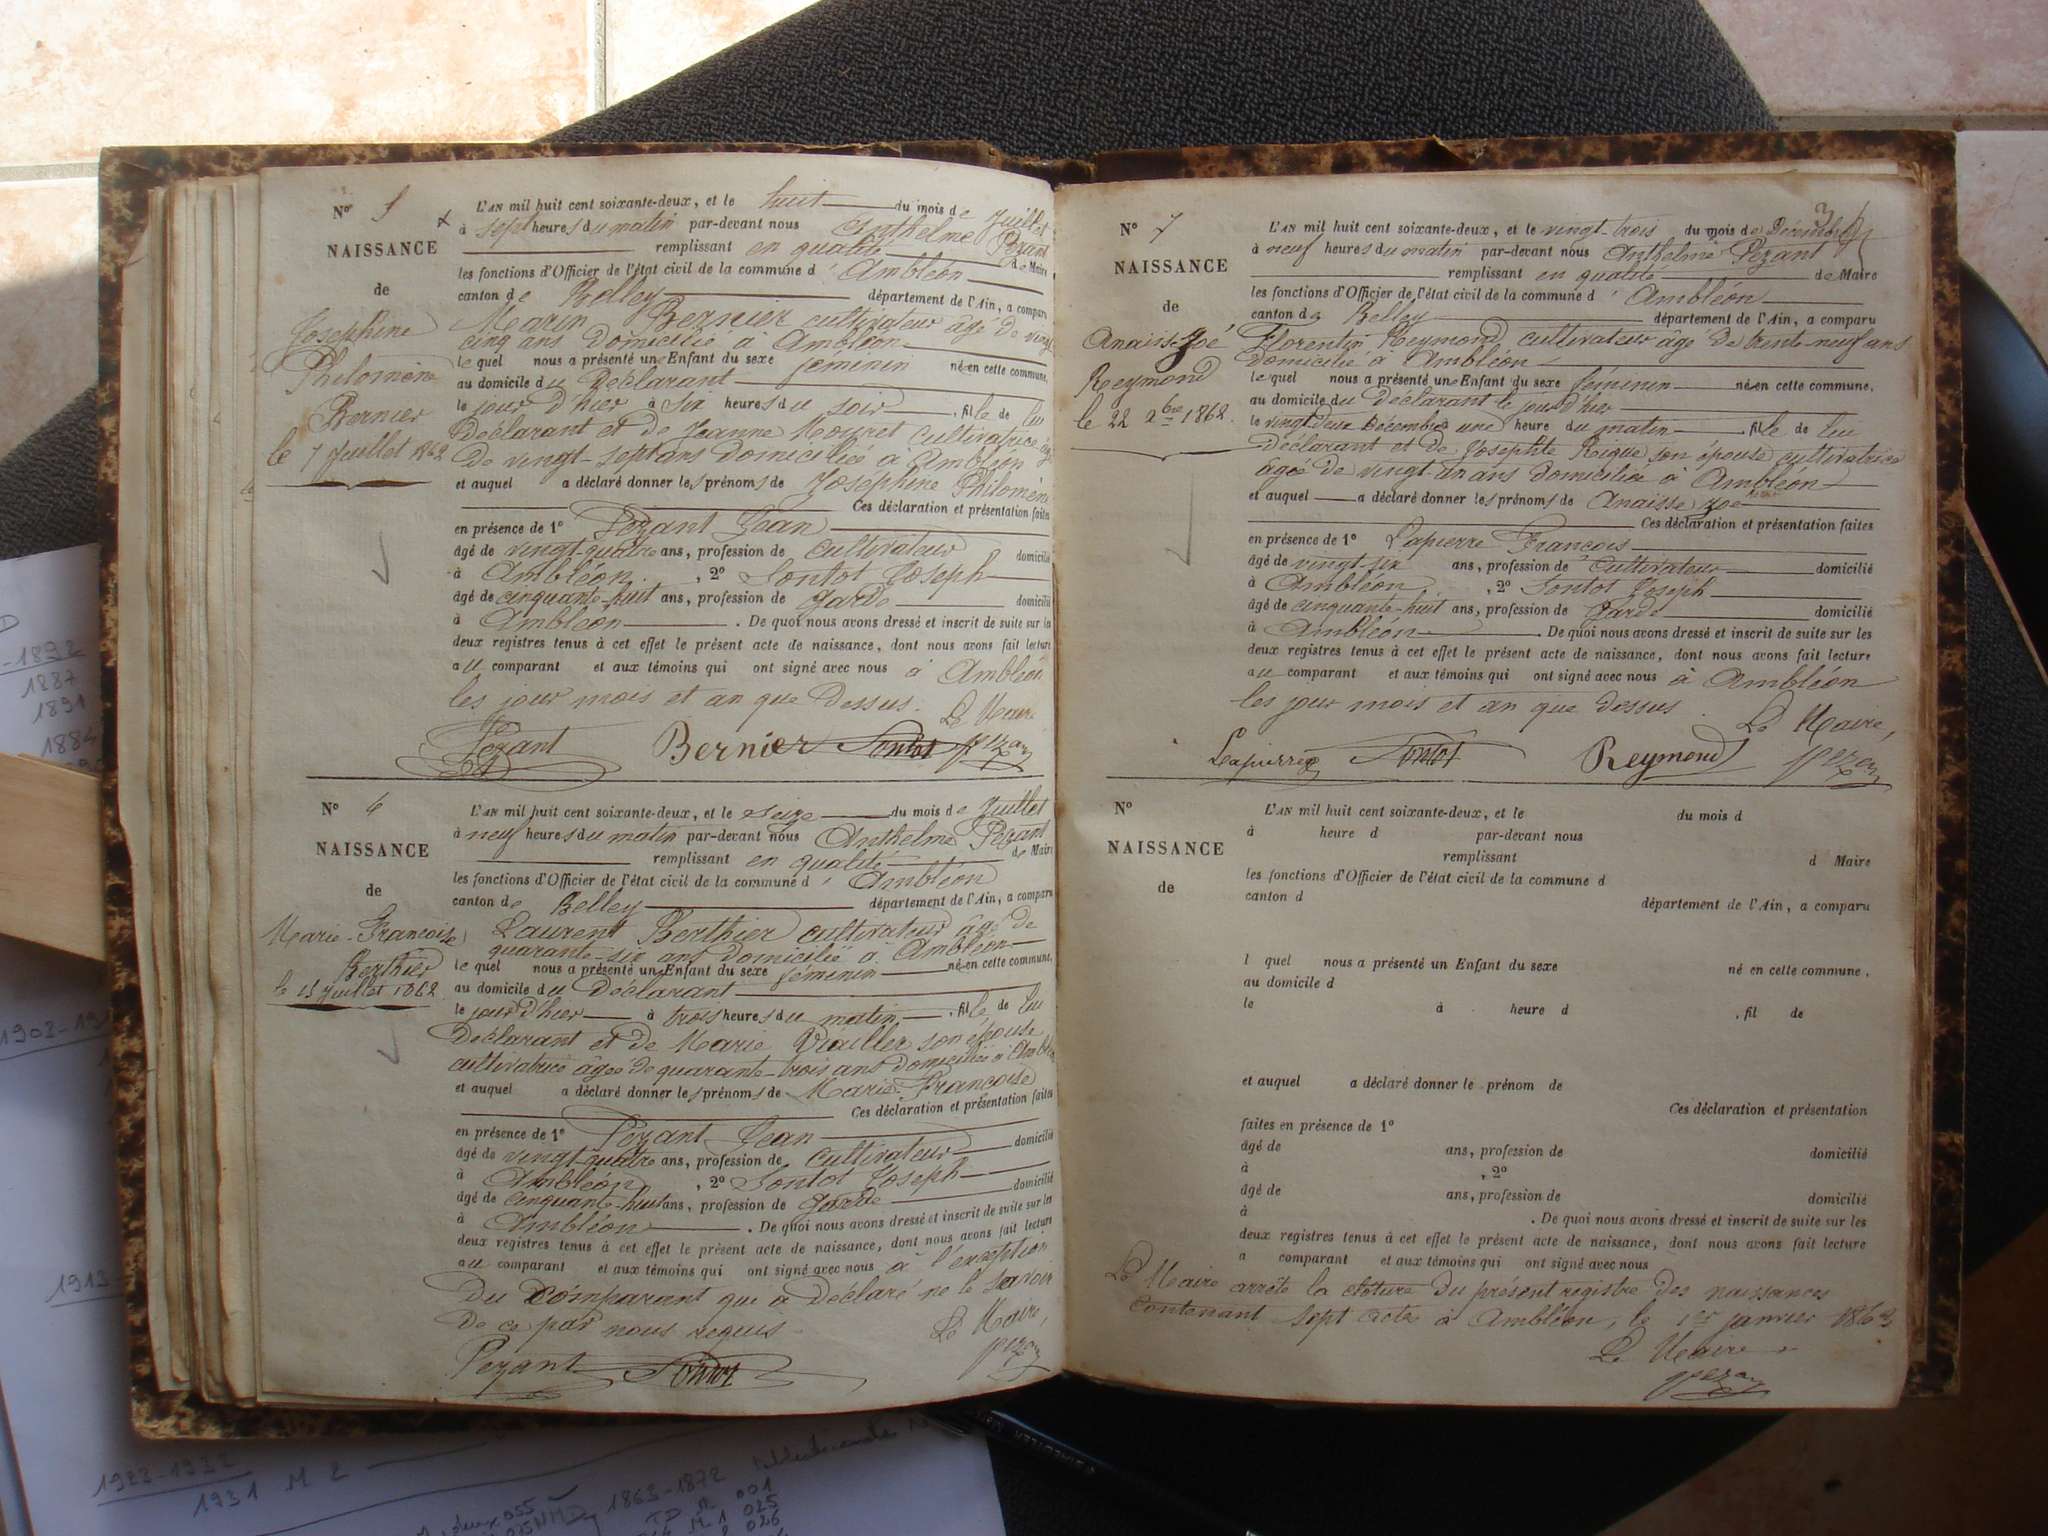 Nº 5
NAISSANCE
de
Josephine
Philomène
Bernier
le 7 Juillet 1862
L'AN mil huit cent soixante-deux, et le huit du mois de Juillet
à sept heures du matin par-devant nous Anthelme Pezant
remplissant en qualité de Maire
les fonctions d'Officier de l'état civil de la commune d'Ambléon
canton de Belley département de l'Ain, a comparu
Marin Bernier cultivateur âgé de vingt
cinq ans domicilié à Ambléon
le quel nous a présenté une Enfant du sexe féminin née en cette commune,
au domicile du Déclarant
le jour d'hier à six heures du soir, fille de lui
déclarant et de Jeanne Mouret cultivatrice
de vingt-sept ans domiciliée à Ambléon
et auquel a déclaré donner les prénoms de Josephine Philomène
Ces déclaration et présentation faites
en présence de 1º Pezant Jean
âgé de vingt-quatre ans, profession de cultivateur domicilié
à Ambléon, 2º Sontot Joseph
âgé de cinquante-huit ans, profession de Garde domicilié
à Ambléon. De quoi nous avons dressé et inscrit de suite sur les
deux registres tenus à cet effet le présent acte de naissance, dont nous avons fait lecture
au comparant et aux témoins qui ont signé avec nous à Ambléon
les jour mois et an que dessus. Le Maire
Pezant Bernier Sontot Pezant
Nº 6
NAISSANCE
de
Marie-Francoise
Berthier
le 15 Juillet 1862
L'AN mil huit cent soixante-deux, et le seize du mois de Juillet
à neuf heures du matin par-devant nous Anthelme Pezant
remplissant en qualité de Maire
les fonctions d'Officier de l'état civil de la commune d'Ambléon
canton de Belley département de l'Ain, a comparu
Laurent Berthier cultivateur âgé de
quarante-six ans domicilié à Ambléon
le quel nous a présenté une Enfant du sexe féminin née en cette commune,
au domicile du Déclarant
le jour d'hier à trois heures du matin, fille de lui
Déclarant et de Marie Vialler son épouse
cultivatrice âgée de quarante-trois ans domiciliée à Ambléon
et auquel a déclaré donner les prénoms de Marie-Francoise
Ces déclaration et présentation faites
en présence de 1º Pezant Jean
âgé de vingt-quatre ans, profession de cultivateur domicilié
à Ambléon, 2º Sontot Joseph
âgé de cinquante-huit ans, profession de Garde domicilié
à Ambléon. De quoi nous avons dressé et inscrit de suite sur les
deux registres tenus à cet effet le présent acte de naissance, dont nous avons fait lecture
au comparant et aux témoins qui ont signé avec nous à l'exception
du comparant que a déclaré ne le savoir
de ce par nous requis. Le Maire,
Pezant Sontot Pezant
3
Nº 7
NAISSANCE
de
Anaisse Zoé
Reymond
le 22 Xbre 1862.
L'AN mil huit cent soixante-deux, et le vingt-trois du mois de Décembre
à neuf heures du matin par-devant nous Anthelme Pezant
remplissant en qualité de Maire
les fonctions d'Officier de l'état civil de la commune d'Ambléon
canton de Belley département de l'Ain, a comparu
Florentin Reymond cultivateur âgé de trente-neuf ans
domicilié à Ambléon
le quel nous a présenté une Enfant du sexe féminin née en cette commune,
au domicile du déclarant le jour d'hier
le vingt deux Décembre à une heure du matin fille de lui
déclarant et de Josephte Reique son épouse cultivatrice
agée de vingt-un ans domiciliée à Ambléon
et auquel a déclaré donner les prénoms de Anaisse Zoé
Ces déclaration et présentation faites
en présence de 1º Lapierre Francois
âgé de vingt-six ans, profession de Cultivateur domicilié
à Ambléon, 2º Sontot Joseph
âgé de cinquante-huit ans, profession de Garde domicilié
à Ambléon. De quoi nous avons dressé et inscrit de suite sur les
deux registres tenus à cet effet le présent acte de naissance, dont nous avons fait lecture
au comparant et aux témoins qui ont signé avec nous à Ambléon
les jour mois et an que dessus. Le Maire,
Lapierre Sontot Reymond Pezant
Nº
NAISSANCE
de
L'AN mil huit cent soixante-deux, et le du mois d
à heure d par-devant nous
remplissant d Maire
les fonctions d'Officier de l'état civil de la commune d
canton d département de l'Ain, a comparu
l quel nous a présenté un Enfant du sexe né en cette commune,
au domicile d
le à heure d , fil de
et auquel a déclaré donner le prénom de
Ces déclaration et présentation
faites en présence de 1º
âgé de ans, profession de domicilié
à , 2º
âgé de ans, profession de domicilié
à . De quoi nous avons dressé et inscrit de suite sur les
deux registres tenus à cet effet le présent acte de naissance, dont nous avons fait lecture
a comparant et aux témoins qui ont signé avec nous
Le Maire arrête la clôture du présent registre des naissances
contenant sept actes à Ambléon, le 1er janvier 1863
Le Maire
Pezant
1892
1887
1891
1884
1903-19
1913-
1923-1932
1931 M 2
1863-1872
TD N 001
M 1 025
026